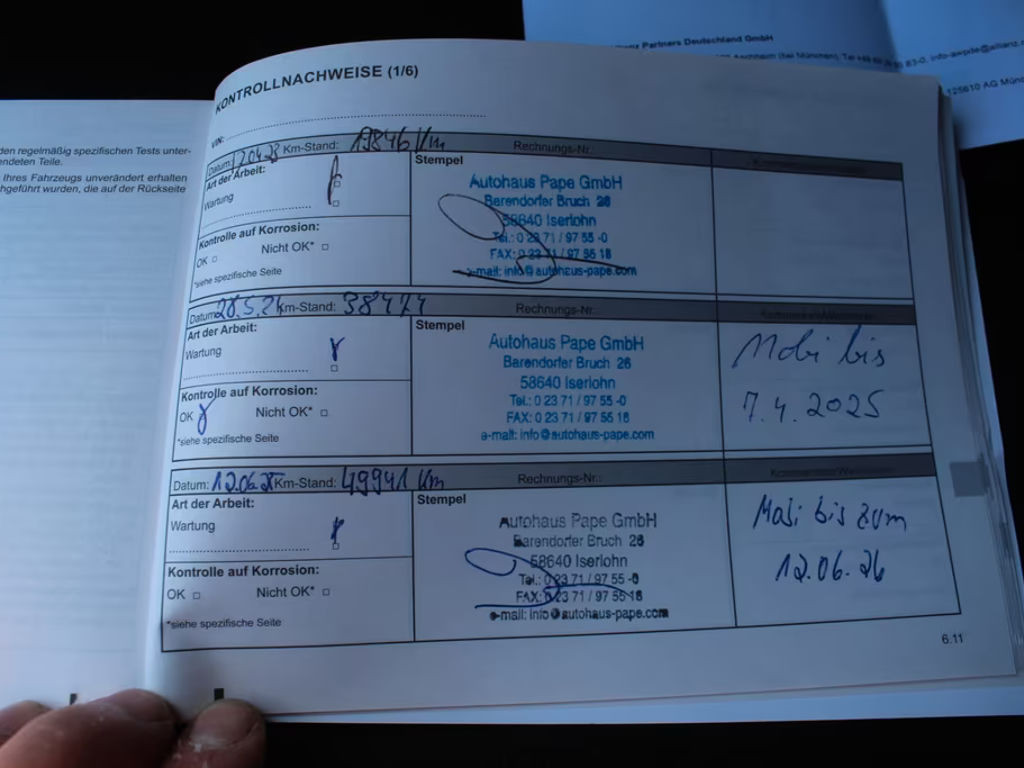 nz Partners Deutschland GmbH
info-awpde@allianz.c
125610 AG Münc
den regelmäßig spezifischen Tests unter-
endeten Teile.
Ihres Fahrzeugs unverändert erhalten
hgeführt wurden, die auf der Rückseite
KONTROLLNACHWEISE (1/6)
VIN:
Datum: Km-Stand: 19846 Km Rechnungs-Nr.:
Art der Arbeit:
Wartung
Stempel
Autohaus Pape GmbH
Barendorfer Bruch 26
58640 Iserlohn
Tel.: 0 23 71 / 97 55 -0
FAX: 0 23 71 / 97 55 18
e-mail: info@autohaus-pape.com
Kontrolle auf Korrosion:
OK Nicht OK*
*siehe spezifische Seite
Datum: 28.5.24 Km-Stand: 38474 Rechnungs-Nr.:
Art der Arbeit:
Wartung
Stempel
Autohaus Pape GmbH
Barendorfer Bruch 26
58640 Iserlohn
Tel.: 0 23 71 / 97 55 -0
FAX: 0 23 71 / 97 55 18
e-mail: info@autohaus-pape.com
Mobi bis
7.4.2025
Kontrolle auf Korrosion:
OK Nicht OK*
*siehe spezifische Seite
Datum: 12.06.25 Km-Stand: 49941 Km Rechnungs-Nr.:
Art der Arbeit:
Wartung
Stempel
Autohaus Pape GmbH
Barendorfer Bruch 26
58640 Iserlohn
Tel.: 0 23 71 / 97 55 -0
FAX: 0 23 71 / 97 55 18
e-mail: info@autohaus-pape.com
Mobi bis zum
12.06.26
Kontrolle auf Korrosion:
OK Nicht OK*
*siehe spezifische Seite
6.11